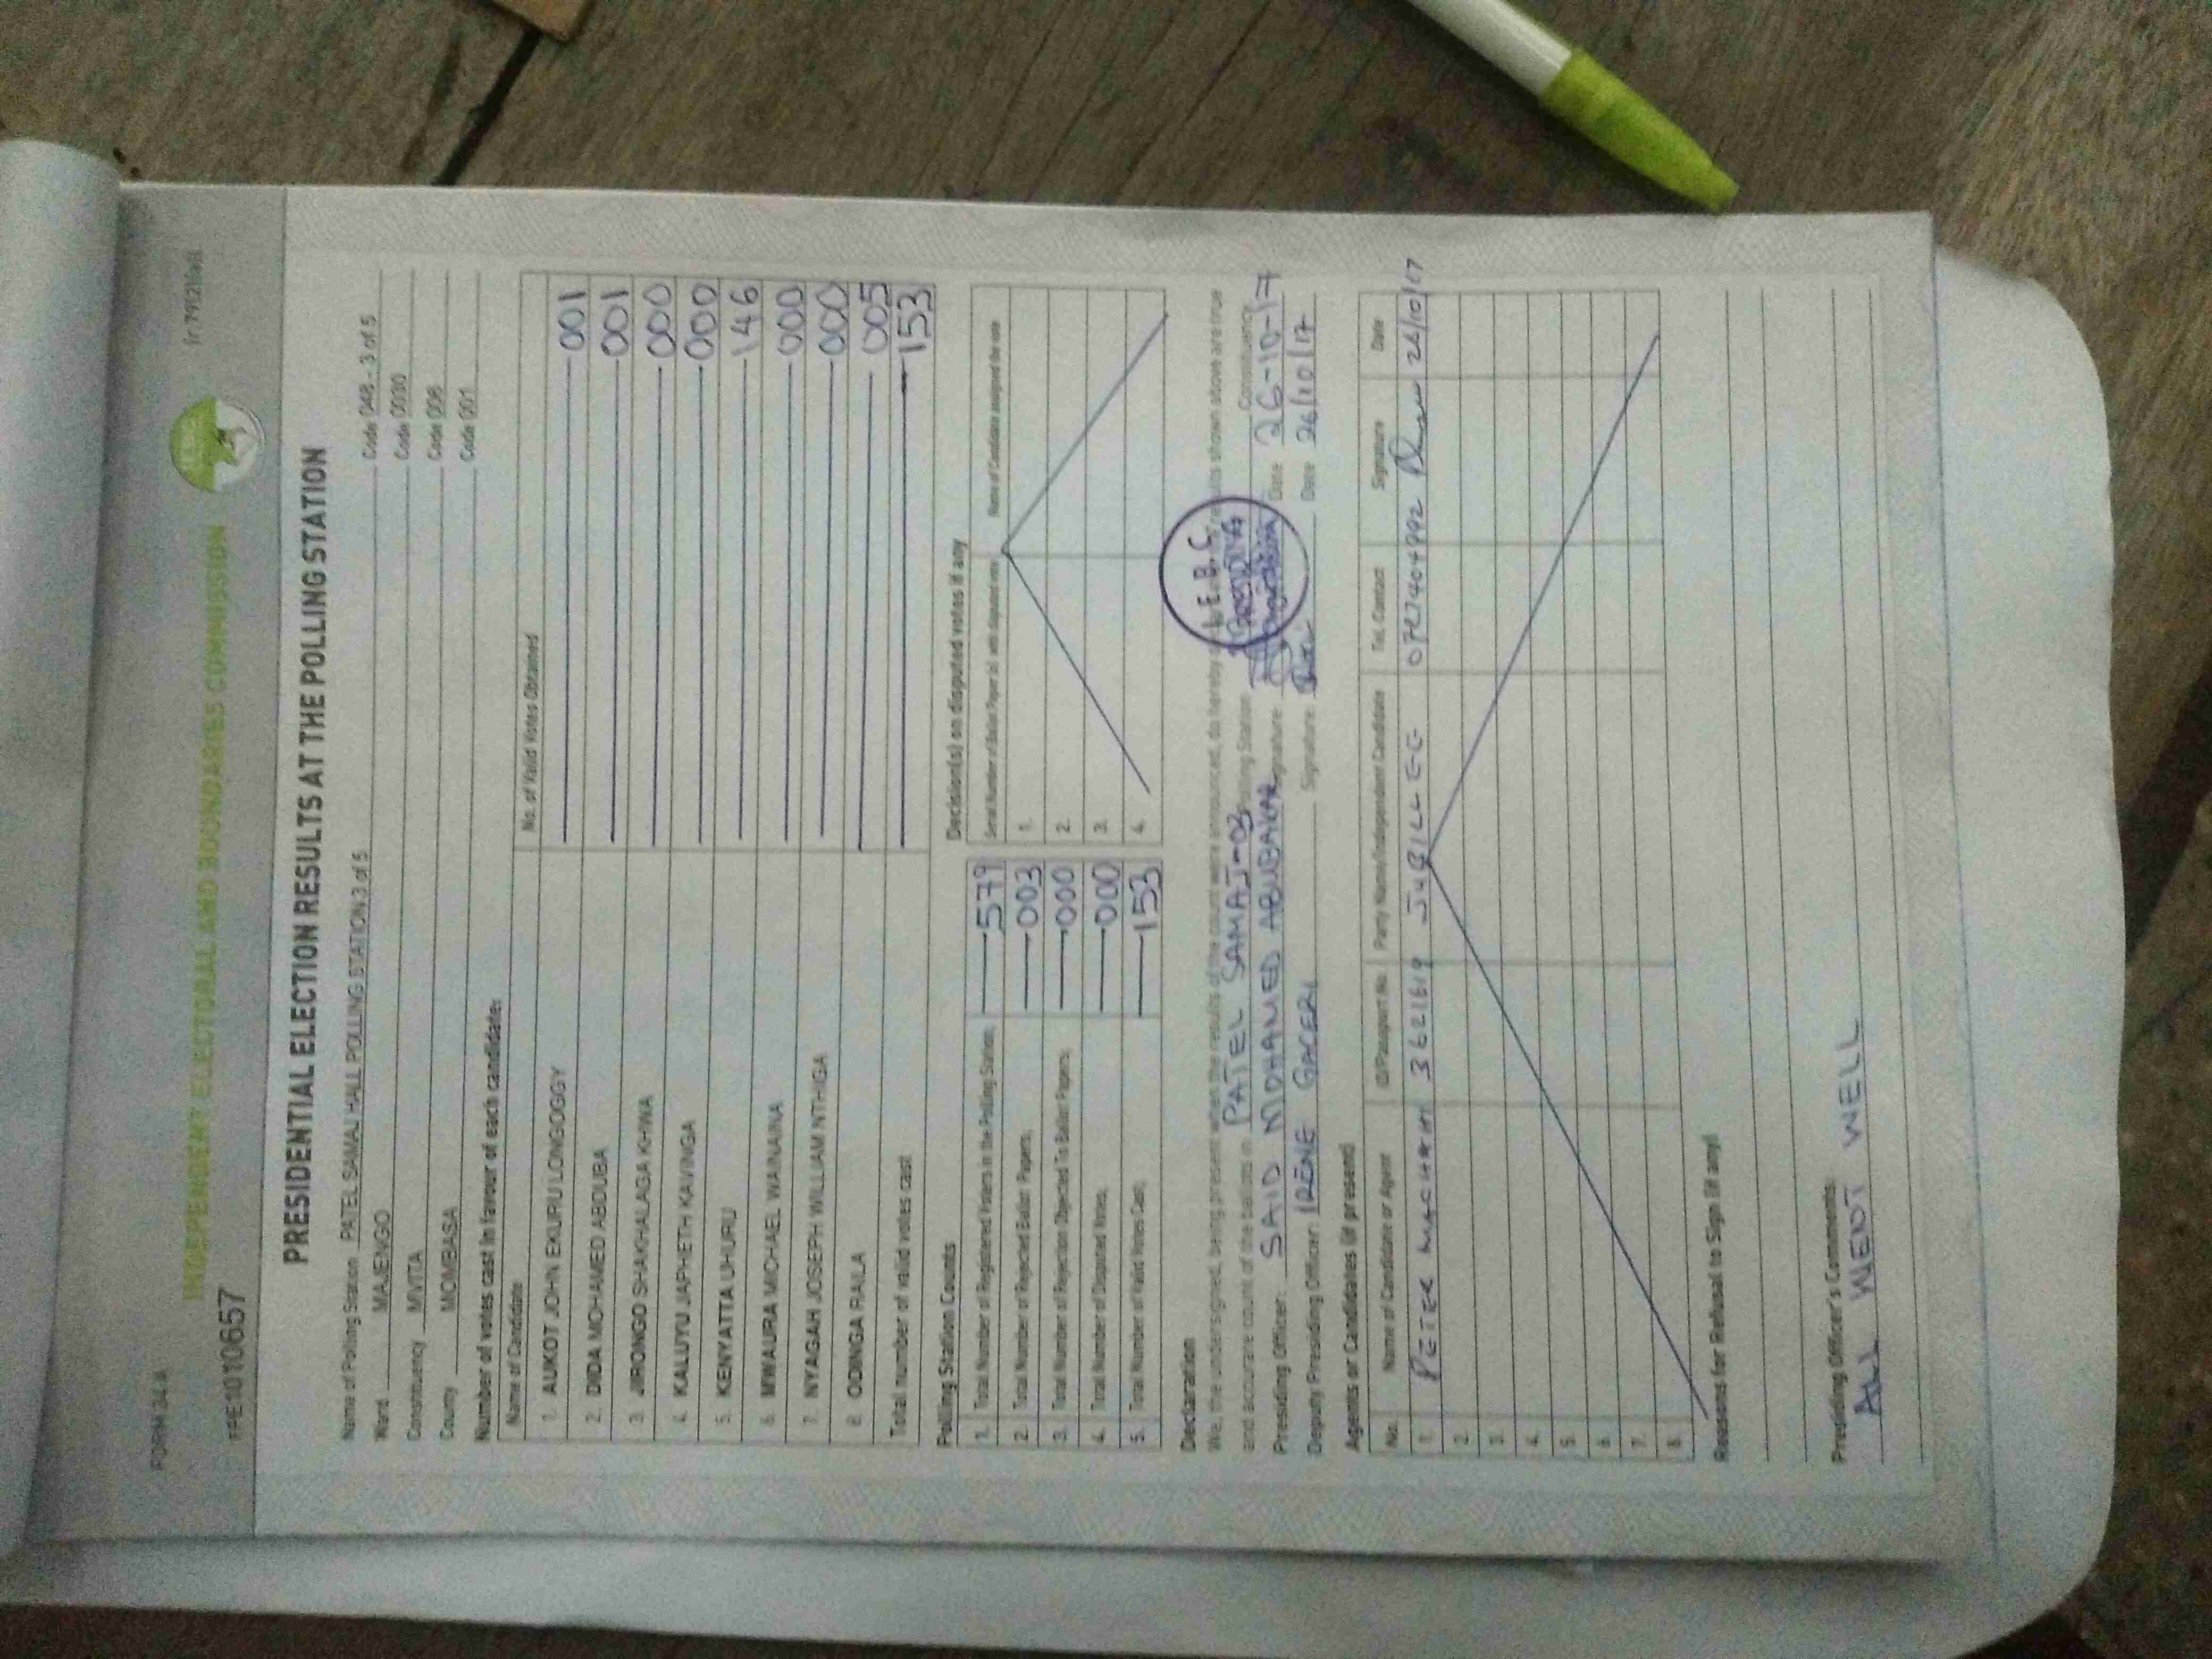 FORM 34 A
INDEPENDENT ELECTORAL AND BOUNDARIES COMMISSION
PRESIDENTIAL ELECTION RESULTS AT THE POLLING STATION
Name of Polling Station PATEL SAMAJ HALL POLLING STATION 3 of 5 Code 048 - 3 of 5
Ward MAJENGO Code 0030
Constituency MVITA Code 006
County MOMBASA Code 001
Number of votes cast in favour of each candidate:
Name of Candidate No. of Valid Votes Obtained
1. AUKOT JOHN EKURU LONGOGGY 001
2. DIDA MOHAMED ABDUBA 001
3. JIRONGO SHAKHALAGA KHWA 000
4. KALUYU JAPHETH KAVINGA 000
5. KENYATTA UHURU 146
6. MWAURA MICHAEL WAINAINA 000
7. NYAGAH JOSEPH WILLIAM NTHIGA 000
8. ODINGA RAILA 005
Total number of valid votes cast 153
Polling Station Counts
1. Total Number of Registered Voters in the Polling Station; 579
2. Total Number of Rejected Ballot Papers; 003
3. Total Number of Rejection Objected To Ballot Papers; 000
4. Total Number of Disputed Votes; 000
5. Total Number of Valid Votes Cast; 153
Decision(s) on disputed votes if any
Serial Number of Ballot Paper (s) with disputed vote Name of Candidate assigned the vote
1.
2.
3.
4.
Declaration
We, the undersigned, being present when the results of the count were announced, do hereby shown above are true
and accurate count of the ballots in PATEL SAMAJ-03 Polling Station Constituency
I.E.B.C.
PRESIDING
Presiding Officer: SAID MOHAMED ABUBAKAR Signature: Date 26-10-17
Deputy Presiding Officer: IRENE GACERI Signature: Date 26/10/17
Agents or Candidates (if present)
No. Name of Candidate or Agent ID/Passport No. Party Name/Independent Candidate Tel. Contact Signature Date
1. PETER MACHARIA 36216619 JUBILLEE 26/10/17
2.
3.
4.
5.
6.
7.
8.
Reasons for Refusal to Sign (if any)
Presiding Officer's Comments:
ALL WENT WELL